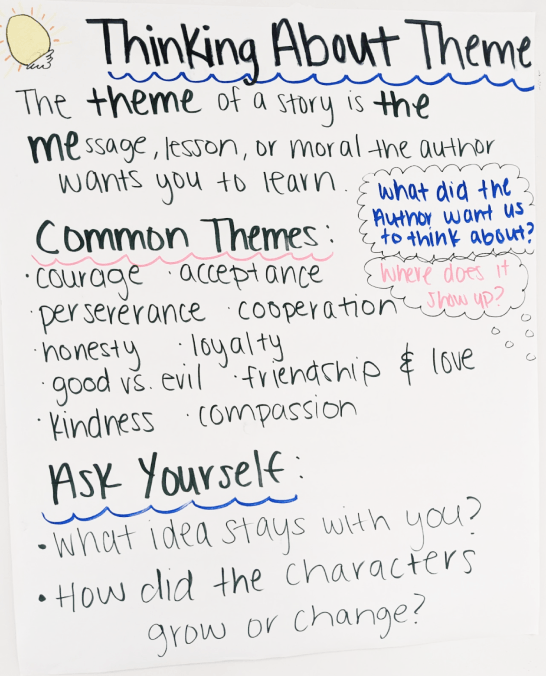 Thinking About Theme
The theme of a story is the
message, lesson, or moral the author
wants you to learn.
What did the
Author want us
to think about?
Where does it
show up?
Common Themes:
· courage · acceptance
· perserverance · cooperation
· honesty · loyalty
· good vs. evil · friendship & love
· kindness · compassion
Ask Yourself:
• What idea stays with you?
• How did the characters
grow or change?